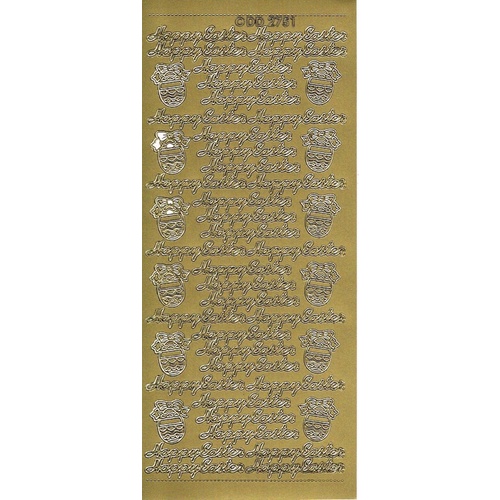 Happy Easter Happy Easter
Happy Easter Happy Easter
Happy Easter
Happy Easter
Happy Easter
Happy Easter Happy Easter
Happy Easter
Happy Easter
Happy Easter
Happy Easter Happy Easter
Happy Easter
Happy Easter
Happy Easter
Happy Easter Happy Easter
Happy Easter
Happy Easter
Happy Easter
Happy Easter Happy Easter
Happy Easter
Happy Easter
Happy Easter
Happy Easter Happy Easter
Happy Easter
Happy Easter
Happy Easter
Happy Easter Happy Easter
Happy Easter Happy Easter